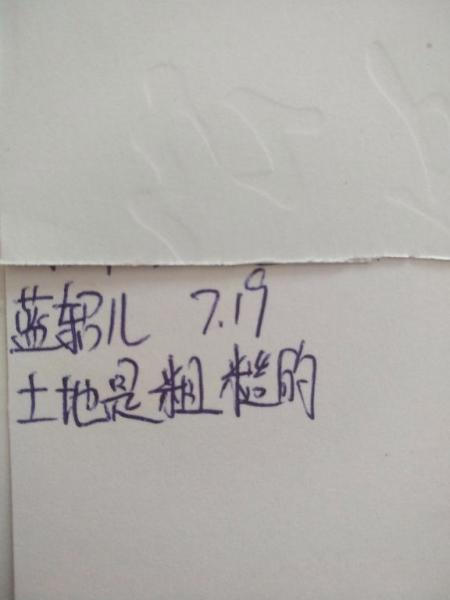 蓝轿儿 7.19
土地是粗糙的